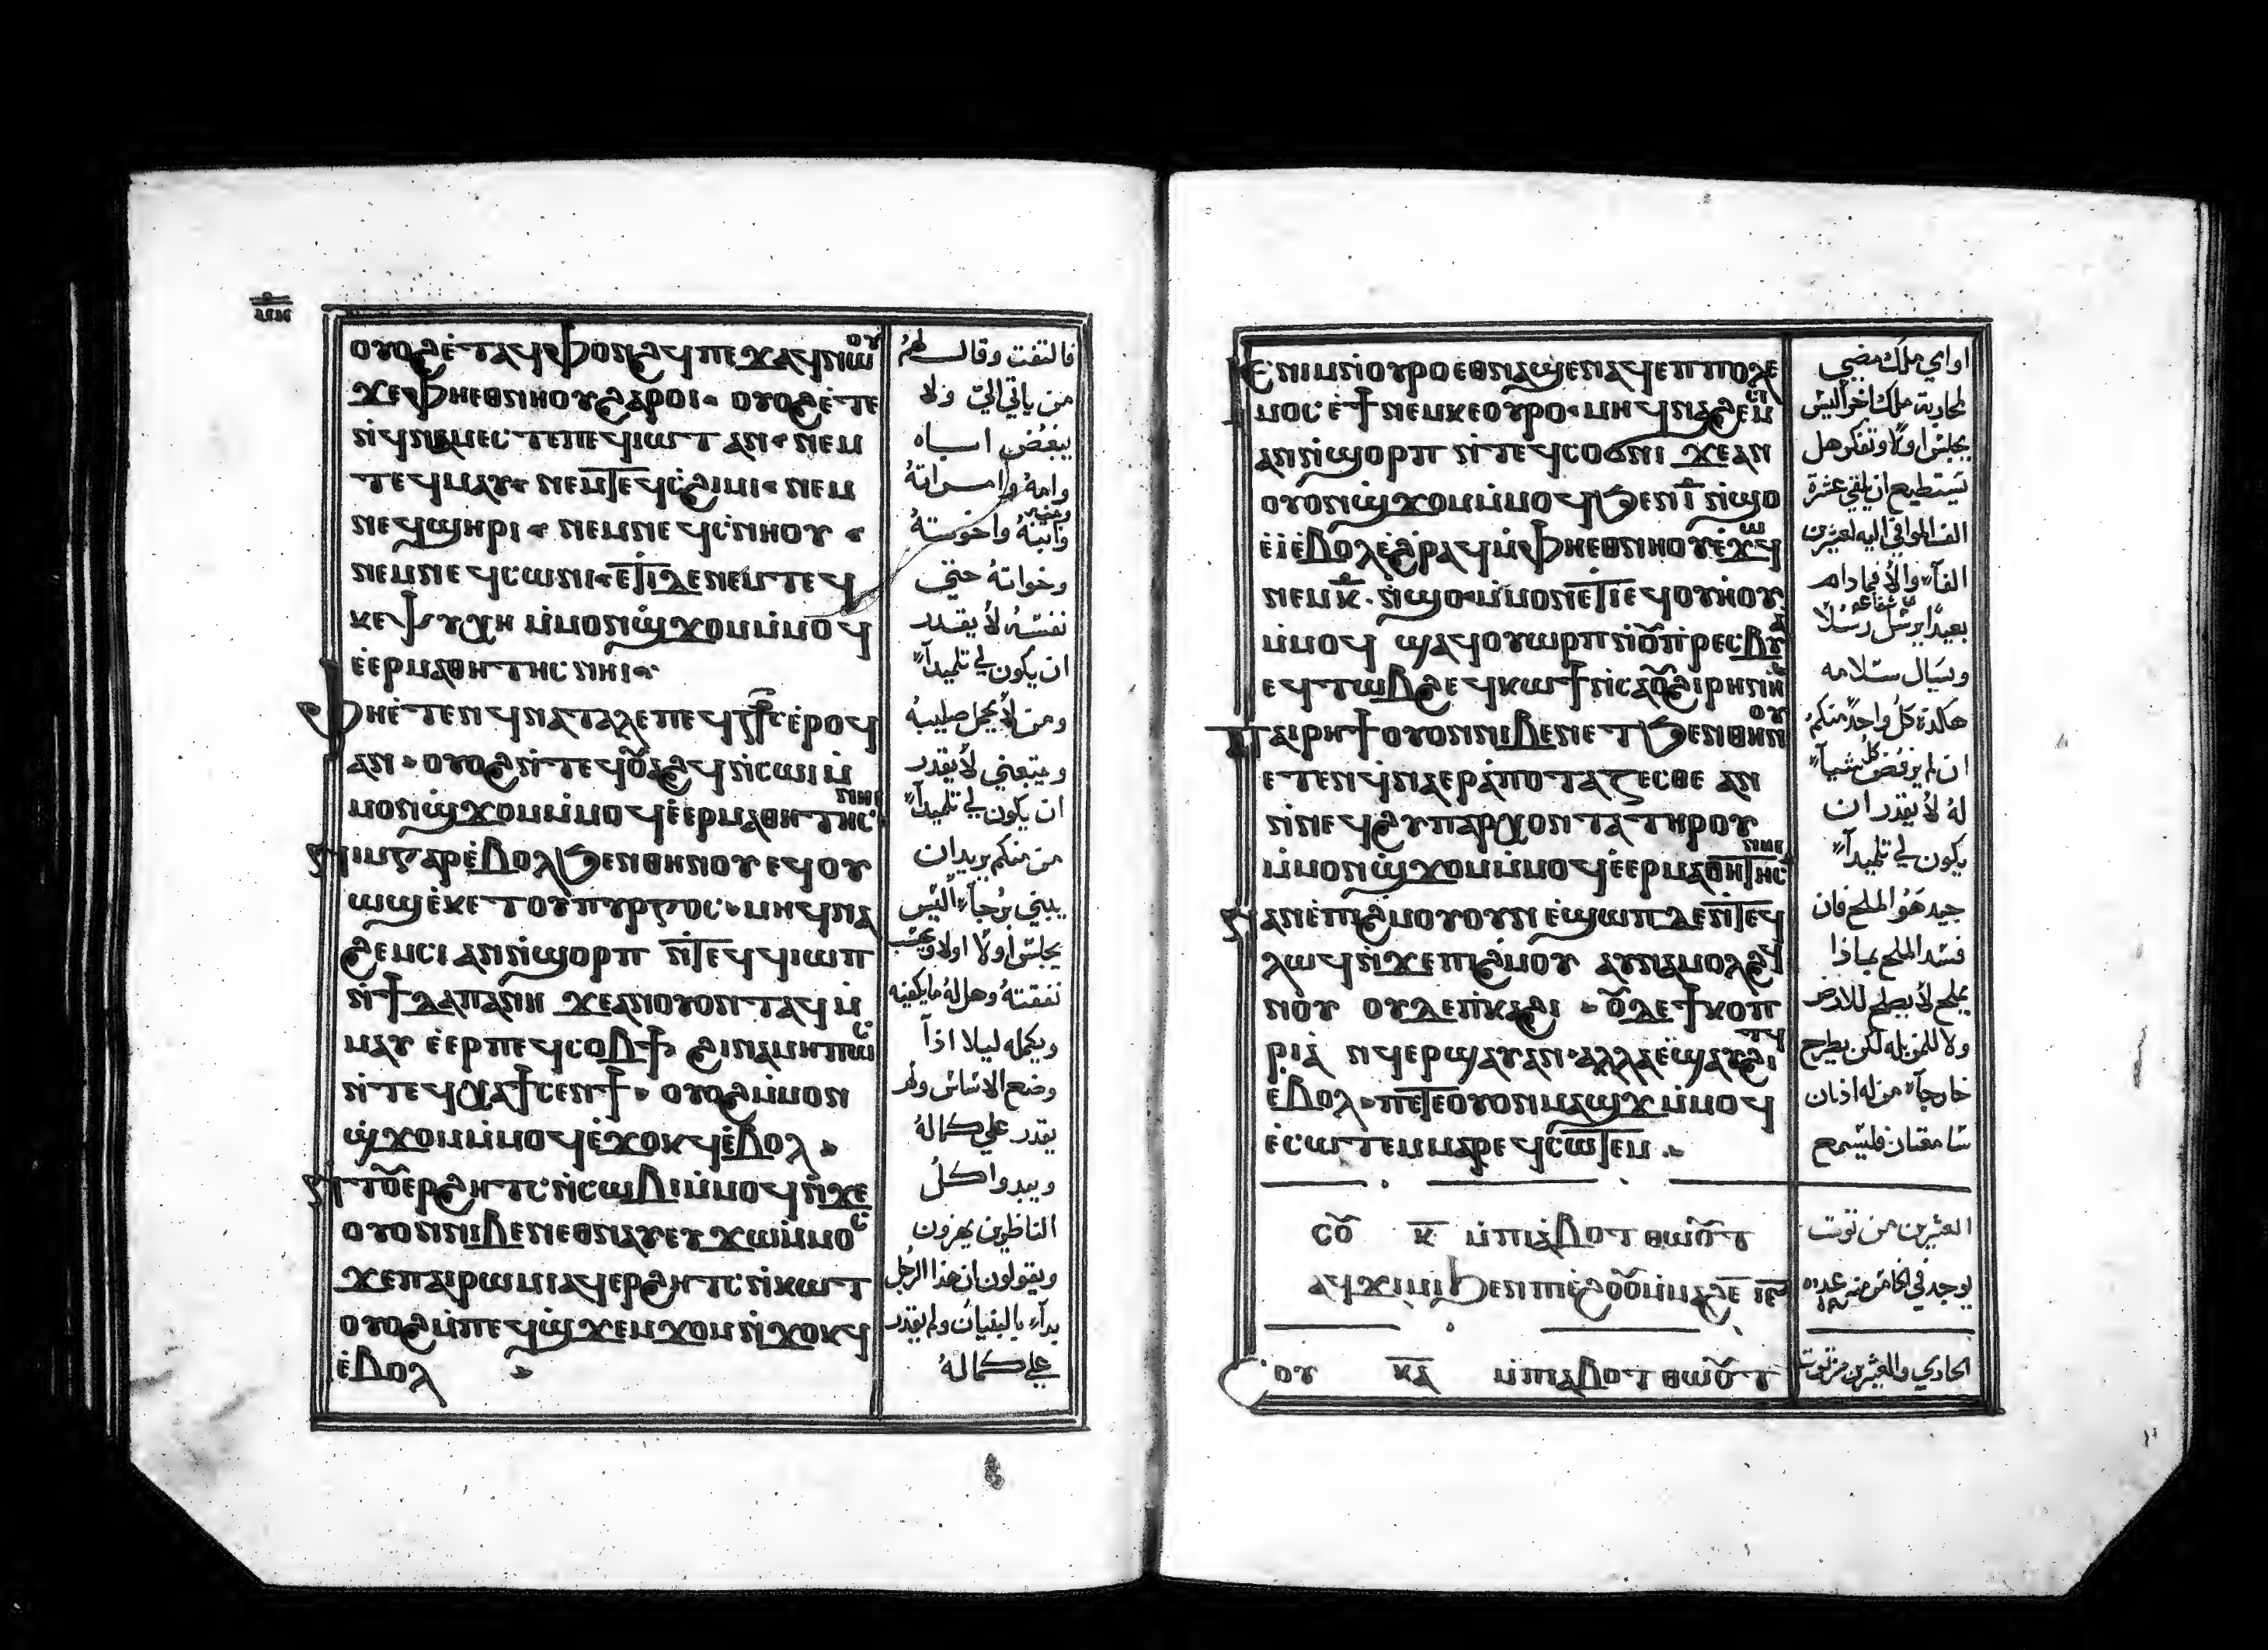 ⲟⲩⲟϩ ⲉ̀ⲧⲁϥⲫⲟⲛϩϥ ⲡⲉϫⲁϥ ⲛⲱⲟⲩ
ϫⲉ ⲫⲏⲉⲑⲛⲏⲟⲩ ϩⲁⲣⲟⲓ· ⲟⲩⲟϩ ⲉ̀ⲧⲉ
ⲛ̀ϥⲛⲁⲙⲉⲥⲧⲉ ⲡⲉϥⲓⲱⲧ ⲁⲛ· ⲛⲉⲙ
ⲧⲉϥⲙⲁⲩ· ⲛⲉⲙ ⲧⲉϥⲥ̀ϩⲓⲙⲓ· ⲛⲉⲙ
ⲛⲉϥϣⲏⲣⲓ· ⲛⲉⲙ ⲛⲉϥⲥ̀ⲛⲏⲟⲩ·
ⲛⲉⲙ ⲛⲉϥⲥⲱⲛⲓ· ⲉⲧⲓ ⲇⲉ ⲛⲉⲙ ⲧⲉϥ
ⲕⲉⲯⲩⲭⲏ ⲙ̀ⲙⲟⲛ ϣ̀ϫⲟⲙ ⲙ̀ⲙⲟϥ
ⲉ̀ⲉⲣⲙⲁⲑⲏⲧⲏⲥ ⲛⲏⲓ·
ⲫⲏⲉ̀ⲧⲉⲛϥⲛⲁⲧⲁⲗⲉ ⲡⲉϥⲥ̀ⲧⲣⲟⲥ ⲉ̀ⲣⲟϥ
ⲁⲛ· ⲟⲩⲟϩ ⲛ̀ⲧⲉϥⲟⲩⲁϩϥ ⲛ̀ⲥⲱⲓ ⲙ̀
ⲙⲟⲛ ϣ̀ϫⲟⲙ ⲙ̀ⲙⲟϥ ⲉ̀ⲉⲣⲙⲁⲑⲏⲧⲏⲥ ⲛⲏⲓ
ⲛⲓⲙ ⲅⲁⲣ ⲉ̀ⲃⲟⲗ ϧⲉⲛ ⲑⲏⲛⲟⲩ ⲉϥⲟⲩ
ⲱϣ ⲉ̀ⲕⲉⲧ ⲟⲩⲡⲩⲣⲅⲟⲥ· ⲙⲏ ϥⲛⲁ
ϩⲉⲙⲥⲓ ⲁⲛ ⲛ̀ϣⲟⲣⲡ ⲛ̀ⲧⲉϥϥⲓⲱⲡ
ⲛ̀ϯⲇⲁⲡⲁⲛⲏ ϫⲉ ⲁⲛ ⲟⲩⲟⲛⲧⲁϥ ⲙ̀
ⲙⲁⲩ ⲉ̀ⲉⲣⲡⲉϥⲥⲟⲃϯ ϩⲓⲛⲁ ⲙⲏⲡⲱⲥ
ⲛ̀ⲧⲉϥⲭⲁϯⲥⲉⲛϯ· ⲟⲩⲟϩ ⲙ̀ⲙⲟⲛ
ϣ̀ϫⲟⲙ ⲙ̀ⲙⲟϥ ⲉ̀ϫⲟⲕϥ ⲉ̀ⲃⲟⲗ·
ⲛ̀ⲧⲟⲩⲉⲣϩⲏⲧⲥ ⲛ̀ⲥⲱⲃⲓ ⲙ̀ⲙⲟϥ ⲛ̀ϫⲉ
ⲟⲩⲟⲛ ⲛⲓⲃⲉⲛ ⲉⲑⲛⲁⲩ ⲉⲩϫⲱ ⲙ̀ⲙⲟⲥ
ϫⲉ ⲡⲁⲓⲣⲱⲙⲓ ⲁϥⲉⲣϩⲏⲧⲥ ⲛ̀ⲕⲱⲧ
ⲟⲩⲟϩ ⲙ̀ⲡⲉϥϣ̀ϫⲉⲙϫⲟⲙ ⲛ̀ϫⲟⲕϥ
ⲉ̀ⲃⲟⲗ
فالتفت وقال لهم
من ياتي الي ولا
يبغض اباه
وامه وامراته
وابنه واخوته
وخواته حتي
نفسه لا يقدر
ان يكون لي تلميدآ
ومن لا يحمل صليبه
ويتبعني لا يقدر
ان يكون لي تلميدآ
من منكم يريدان
يبني برجآ اليس
يجلس اولا
نفقته وهل له ما يكفيه
ويكمله ليلا اذآ
وضع الاساس ولم
يقدر علي كماله
ويبدوا كل
الناظرين يهزون
ويقولون ان هذا الرجل
بدآ بالبنيان ولم يقدر
علي كماله
ⲉ ⲛⲓⲙ ⲛ̀ⲟⲩⲣⲟ ⲉⲑⲛⲁϣⲉⲛⲁϥ ⲉⲡⲡⲟⲗⲉ
ⲙⲟⲥ ⲉ̀ϯ ⲛⲉⲙ ⲕⲉⲟⲩⲣⲟ· ⲙⲏ ϥⲛⲁϩⲉⲙⲥⲓ
ⲁⲛ ⲛ̀ϣⲟⲣⲡ ⲛ̀ⲧⲉϥⲥⲟϭⲛⲓ ϫⲉ ⲁⲛ
ⲟⲩⲟⲛ ϣ̀ϫⲟⲙ ⲙ̀ⲙⲟϥ ϧⲉⲛ ⲓ̅ ⲛ̀ϣⲟ
ⲉ̀ⲓ̀ ⲉ̀ⲃⲟⲗ ⲉ̀ϩⲣⲁϥ ⲙ̀ⲫⲏⲉⲑⲛⲏⲟⲩ ⲉ̀ϫⲱϥ
ⲛⲉⲙ ⲕ̅· ⲛ̀ϣⲟ· ⲙ̀ⲙⲟⲛ ⲉⲧⲓ ⲉϥⲟⲩⲏⲟⲩ
ⲙ̀ⲙⲟϥ ϣⲁϥⲟⲩⲱⲣⲡ ⲛ̀ⲟⲩⲡ̀ⲣⲉⲥⲃⲩⲁ
ⲉϥⲧⲱⲃϩ ⲉϥⲕⲱϯ ⲛ̀ⲥⲁ ⲟⲩϩⲓⲣⲏⲛⲏ
ⲡⲁⲓⲣⲏϯ ⲟⲩⲟⲛ ⲛⲓⲃⲉⲛ ⲉⲧϧⲉⲛ ⲑⲏⲛⲟⲩ
ⲉⲧⲉⲛϥ̀ⲛⲁⲉⲣⲁ̀ⲡⲟⲧⲁⲍⲉⲥⲑⲉ ⲁⲛ
ⲛ̀ⲛⲉϥϩⲩⲡⲁⲣⲭⲟⲛⲧⲁ ⲧⲏⲣⲟⲩ
ⲙ̀ⲙⲟⲛ ϣ̀ϫⲟⲙ ⲙ̀ⲙⲟϥ ⲉ̀ⲉⲣⲙⲁⲑⲏⲧⲏⲥ ⲛⲏⲓ
ⲛⲁⲛⲉ ⲡⲓϩ̀ⲙⲟⲩ ⲟⲩⲛ ⲉ̀ϣⲱⲡ ⲇⲉ ⲛ̀ⲧⲉϥ
ⲗⲱϥ ⲛ̀ϫⲉ ⲡⲓϩ̀ⲙⲟⲩ ⲁⲩⲛⲁⲙⲟⲗϩϥ
ⲛ̀ⲟⲩ ⲟⲩⲇⲉ ⲡ̀ⲕⲁϩⲓ· ⲟⲩⲇⲉ ϯⲕⲟⲡ
ⲣⲓⲁ̀ ⲛϥⲉⲣϣⲁⲩ ⲁⲛ· ⲁⲗⲗⲁ ⲉ̀ϣⲁⲩϩⲓⲧϥ
ⲉ̀ⲃⲟⲗ· ⲡⲉⲧⲉ ⲟⲩⲟⲛ ⲙⲁϣϫ ⲙ̀ⲙⲟϥ
ⲉ̀ⲥⲱⲧⲉⲙ ⲙⲁⲣⲉϥⲥⲱⲧⲉⲙ·
ⲥⲟⲩ ⲕ̅ ⲙ̀ⲡⲓⲁ̀ⲃⲟⲧ ⲑⲱⲟⲩⲧ
ⲁϥϫⲓⲙⲓ ϧⲉⲛ ⲡⲓⲉ̀ϩⲟⲟⲩ ⲙ̀ⲙⲁϩ ⲉ̅ ⲓⲉ̅
ⲥⲟⲩ ⲕⲁ̅ ⲙ̀ⲡⲓⲁ̀ⲃⲟⲧ ⲑⲱⲟⲩⲧ
او اي ملك مضي
لمحاربة ملك اخر اليس
يجلس اولا وتفكر هل
يستطيع ان يلقي عشرة
الف الموافي اليه لعشرين
الفآ والا فما دام
بعيدًا يرسل رسلًا
ويسال سلامه
هاكذه كل واحد منكم
ان لم يرفض كل شيآ
له لا يقدر ان
يكون لي تلميدآ
جيد هو الملح فان
فسد الملح بماذا
يملح لا يصلح للارض
ولا للمزبله لكن يطرح
خارجآ من له اذنان
سامعتان فليسمع
العشرين من توت
يوجد في الخامس منه
الحادي والعشرين من توت